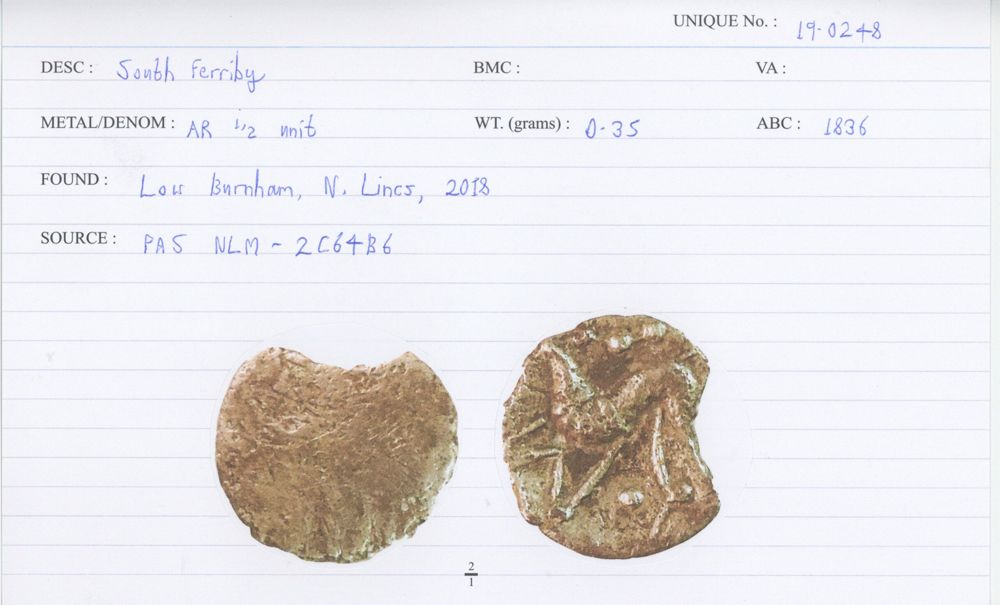 UNIQUE No. : 19-0248
DESC : South Ferriby BMC : VA :
METAL/DENOM : AR 1/2 unit WT. (grams) : 0.35 ABC : 1836
FOUND : Low Burnham, N. Lincs, 2018
SOURCE : PAS NLM - 2C64B6
2
1